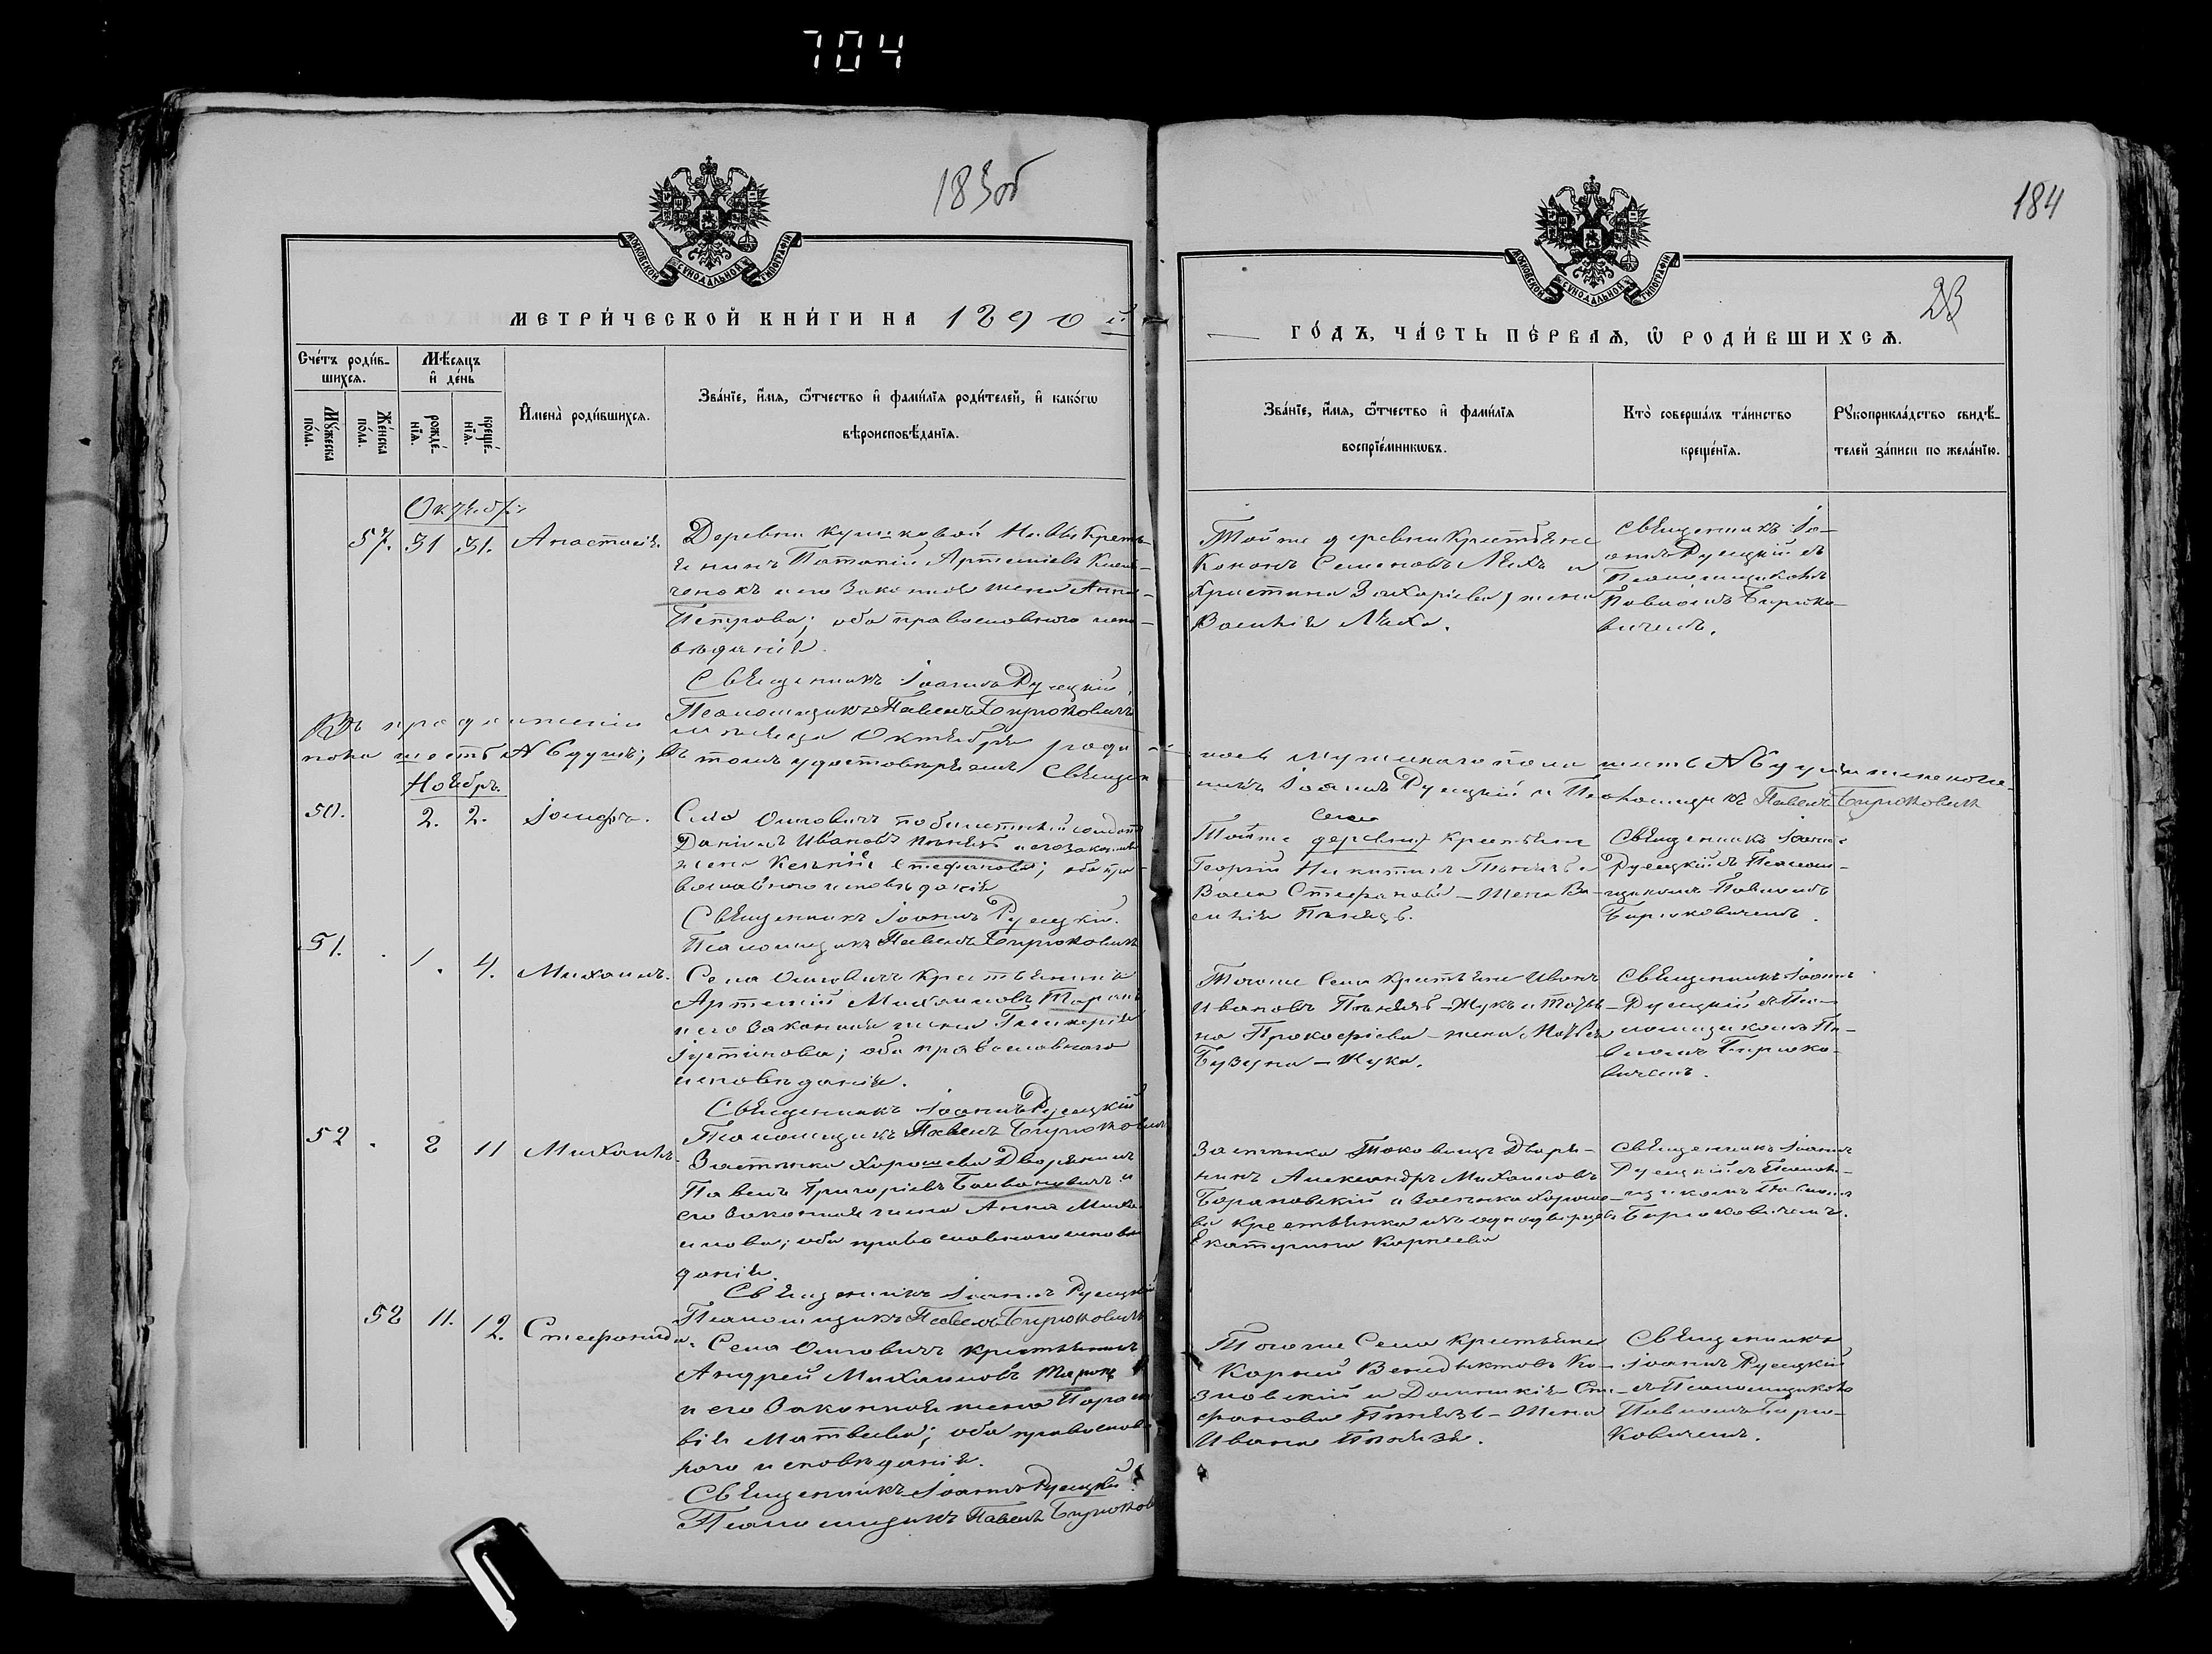 704
183об
184
23
МОСКОВСКОЙ СѴНОДАЛЬНОЙ ТИПОГРАФІИ
МОСКОВСКОЙ СѴНОДАЛЬНОЙ ТИПОГРАФІИ
МЕТРИ́ЧЕСКОЙ КНИ́ГИ НА 1890 й.
ГО́ДЪ, ЧА́СТЬ ПЕ́РВАѦ, Ѡ РОДИ́ВШИХСѦ.
Сче́тъ роди́в-
шихсѧ.
Мѣ́сѧцъ
и҆ де́нь
Мꙋ́жеска по́ла.
Же́нска по́ла.
рожде́-
нїѧ.
креще́-
нїѧ.
И҆мена̀ роди́вшихсѧ.
Зва́нїе, и҆́мѧ, ѻ҆́тчество и҆ фами́лїѧ роди́телей, и҆ како́гѡ
вѣроисповѣ́данїѧ.
Зва́нїе, и҆́мѧ, ѻ҆́тчество и҆ фами́лїѧ
воспрїе́мникѡвъ.
Кто̀ соверша́лъ та́инство
креще́нїѧ.
Рꙋкоприкла́дство свидѣ́-
телей за́писи по жела́нїю.
Октября
57. 31 31. Анастасія.
Деревни
Потапій Артеміевъ
ченокъ и его законная жена Анна
Петрова; оба православнаго испо-
вѣданія.
Священникъ Іоаннъ Русецкій
Псаломщикъ Павелъ Бирюковичъ
Тойже деревни крестьяне
Кононъ Семеновъ Ляхъ и
Христина Захаріева, жена
Василія Ляха.
Священникъ Іо-
аннъ Русецкій съ
Псаломщикомъ
Павломъ Бирюко-
вичемъ.
Въ продолженіи мѣсяца Октября роди-
лось мужескаго пола шесть №6 душъ и женскаго
пола шесть №6 душъ; Въ томъ удостовѣряемъ Священ-
никъ Іоаннъ Русецкій и Псаломщикъ Павелъ Бирюковичъ
Ноябрь.
50. 2. 2. Іосифъ.
Села Олтовичъ
Даніилъ Ивановъ и его законная
жена Стефанова; оба пра-
вославнаго исповѣданія
Священникъ Іоаннъ Русецкій.
Псаломщикъ Павелъ Бирюковичъ
села
Тойже деревни крестьяне
Георгій Никитинъ и
Стефанова – жена Ва-
силія
Священникъ Іоаннъ
Русецкій съ Псалом-
щикомъ Павломъ
Бирюковичемъ.
51. 1. 4. Михаилъ.
Села крестьянинъ
Артемій Михаиловъ
и его законная жена Гликерія
Іустинова; оба православнаго
исповѣданія.
Священникъ Іоаннъ Русецкій
Псаломщикъ Павелъ Бирюковичъ
Тогоже села крестьяне Иванъ
Ивановъ – Жукъ и Татья-
на Прокофіева – жена
– Жука.
Священникъ Іоаннъ
Русецкій съ Пса-
ломщикомъ Па-
вломъ Бирюко-
вичемъ.
52 8 11 Михаилъ.
Застѣнка Дворянинъ
Павелъ Григоріевъ и
его законная жена Анна Миха-
илова; оба православнаго исповѣ-
данія.
Священникъ Іоаннъ Русецкій
Псаломщикъ Павелъ Бирюковичъ
Застѣнка Дворя-
нинъ Александръ Михаиловъ
Барановскій и застѣнка
крестьянка изъ однодворцевъ
Екатерина Карнеева
Священникъ Іоаннъ
Русецкій съ Псалом-
щикомъ Павломъ
Бирюковичемъ.
58 11. 12. Стефанида.
Села крестьянинъ
Андрей Михаиловъ
и его законная жена Параске-
вія Матвѣева; оба православ-
наго исповѣданія.
Священникъ Іоаннъ Русецкій.
Псаломщикъ Павелъ Бирюковичъ
Тогоже села крестьяне
Корній Венедиктовъ Ко-
зловскій и Сте-
фанова – жена
Ивана
Священникъ
Іоаннъ Русецкій
съ Псаломщикомъ
Павломъ Бирю-
ковичемъ.